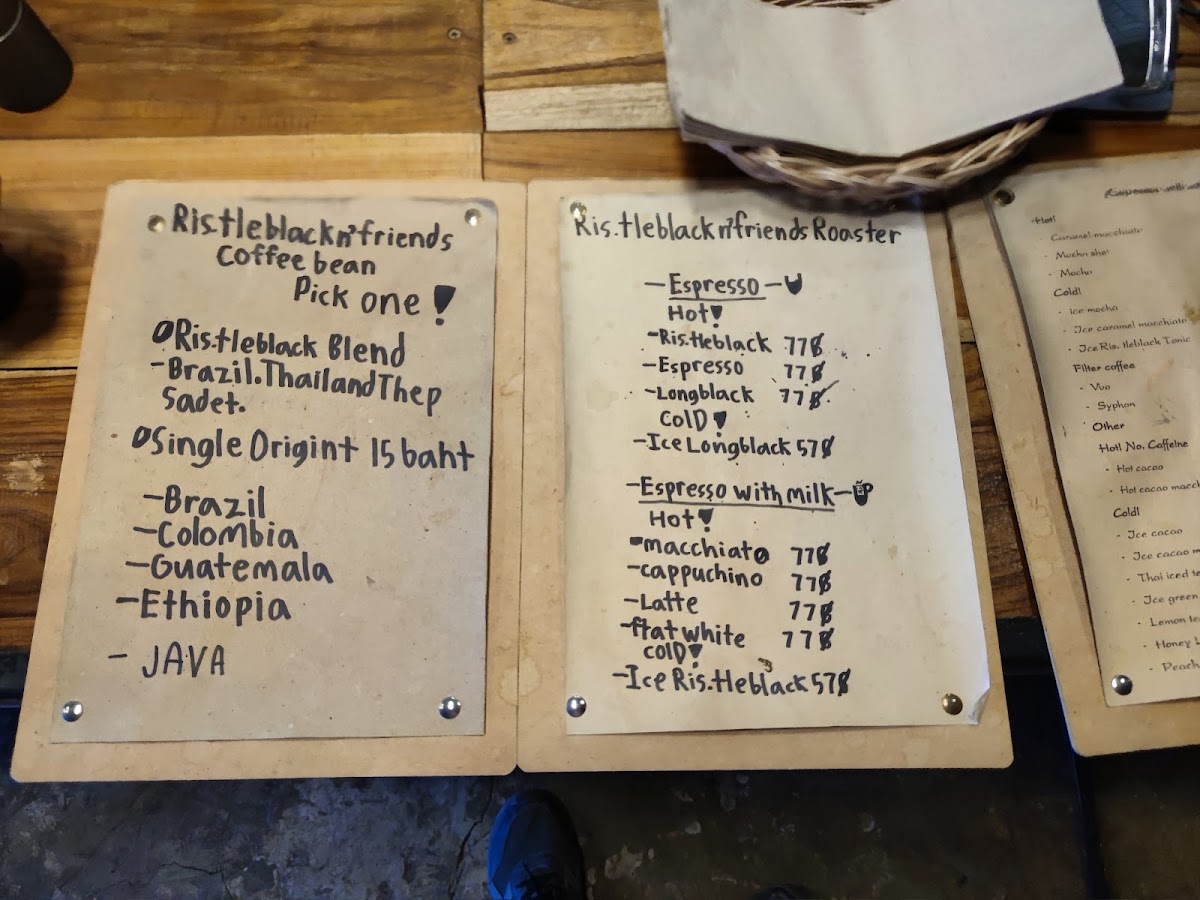 Ris.tleblackn'friends
Coffee bean
Pick one!
Ris.tleblack Blend
-Brazil.ThailandThep
Sadet.
Single Origint 15 baht
-Brazil
-Colombia
-Guatemala
-Ethiopia
- JAVA
Ris.tleblackn'friends Roaster
-Espresso-
Hot!
-Ris.tleblack 77฿
-Espresso 77฿
-Longblack 77฿
COLD!
-Ice Longblack 57฿
-Espresso with milk-
Hot!
-macchiato 77฿
-cappuchino 77฿
-Latte 77฿
-flat white 77฿
COLD!
-Ice Ris.tleblack 57฿
Hot!
- Caramel macchiato
- Mocha
Cold!
- Ice mocha
- Ice caramel macchiato
- Ice Ris.tleblack Tonic
Filter coffee
- Syphon
Other
Hot! No. Caffeine
- Hot cacao
- Hot cacao
Cold!
- Ice cacao
- Ice cacao
- Thai iced
- Ice green
- Lemon
- Honey
- Peach